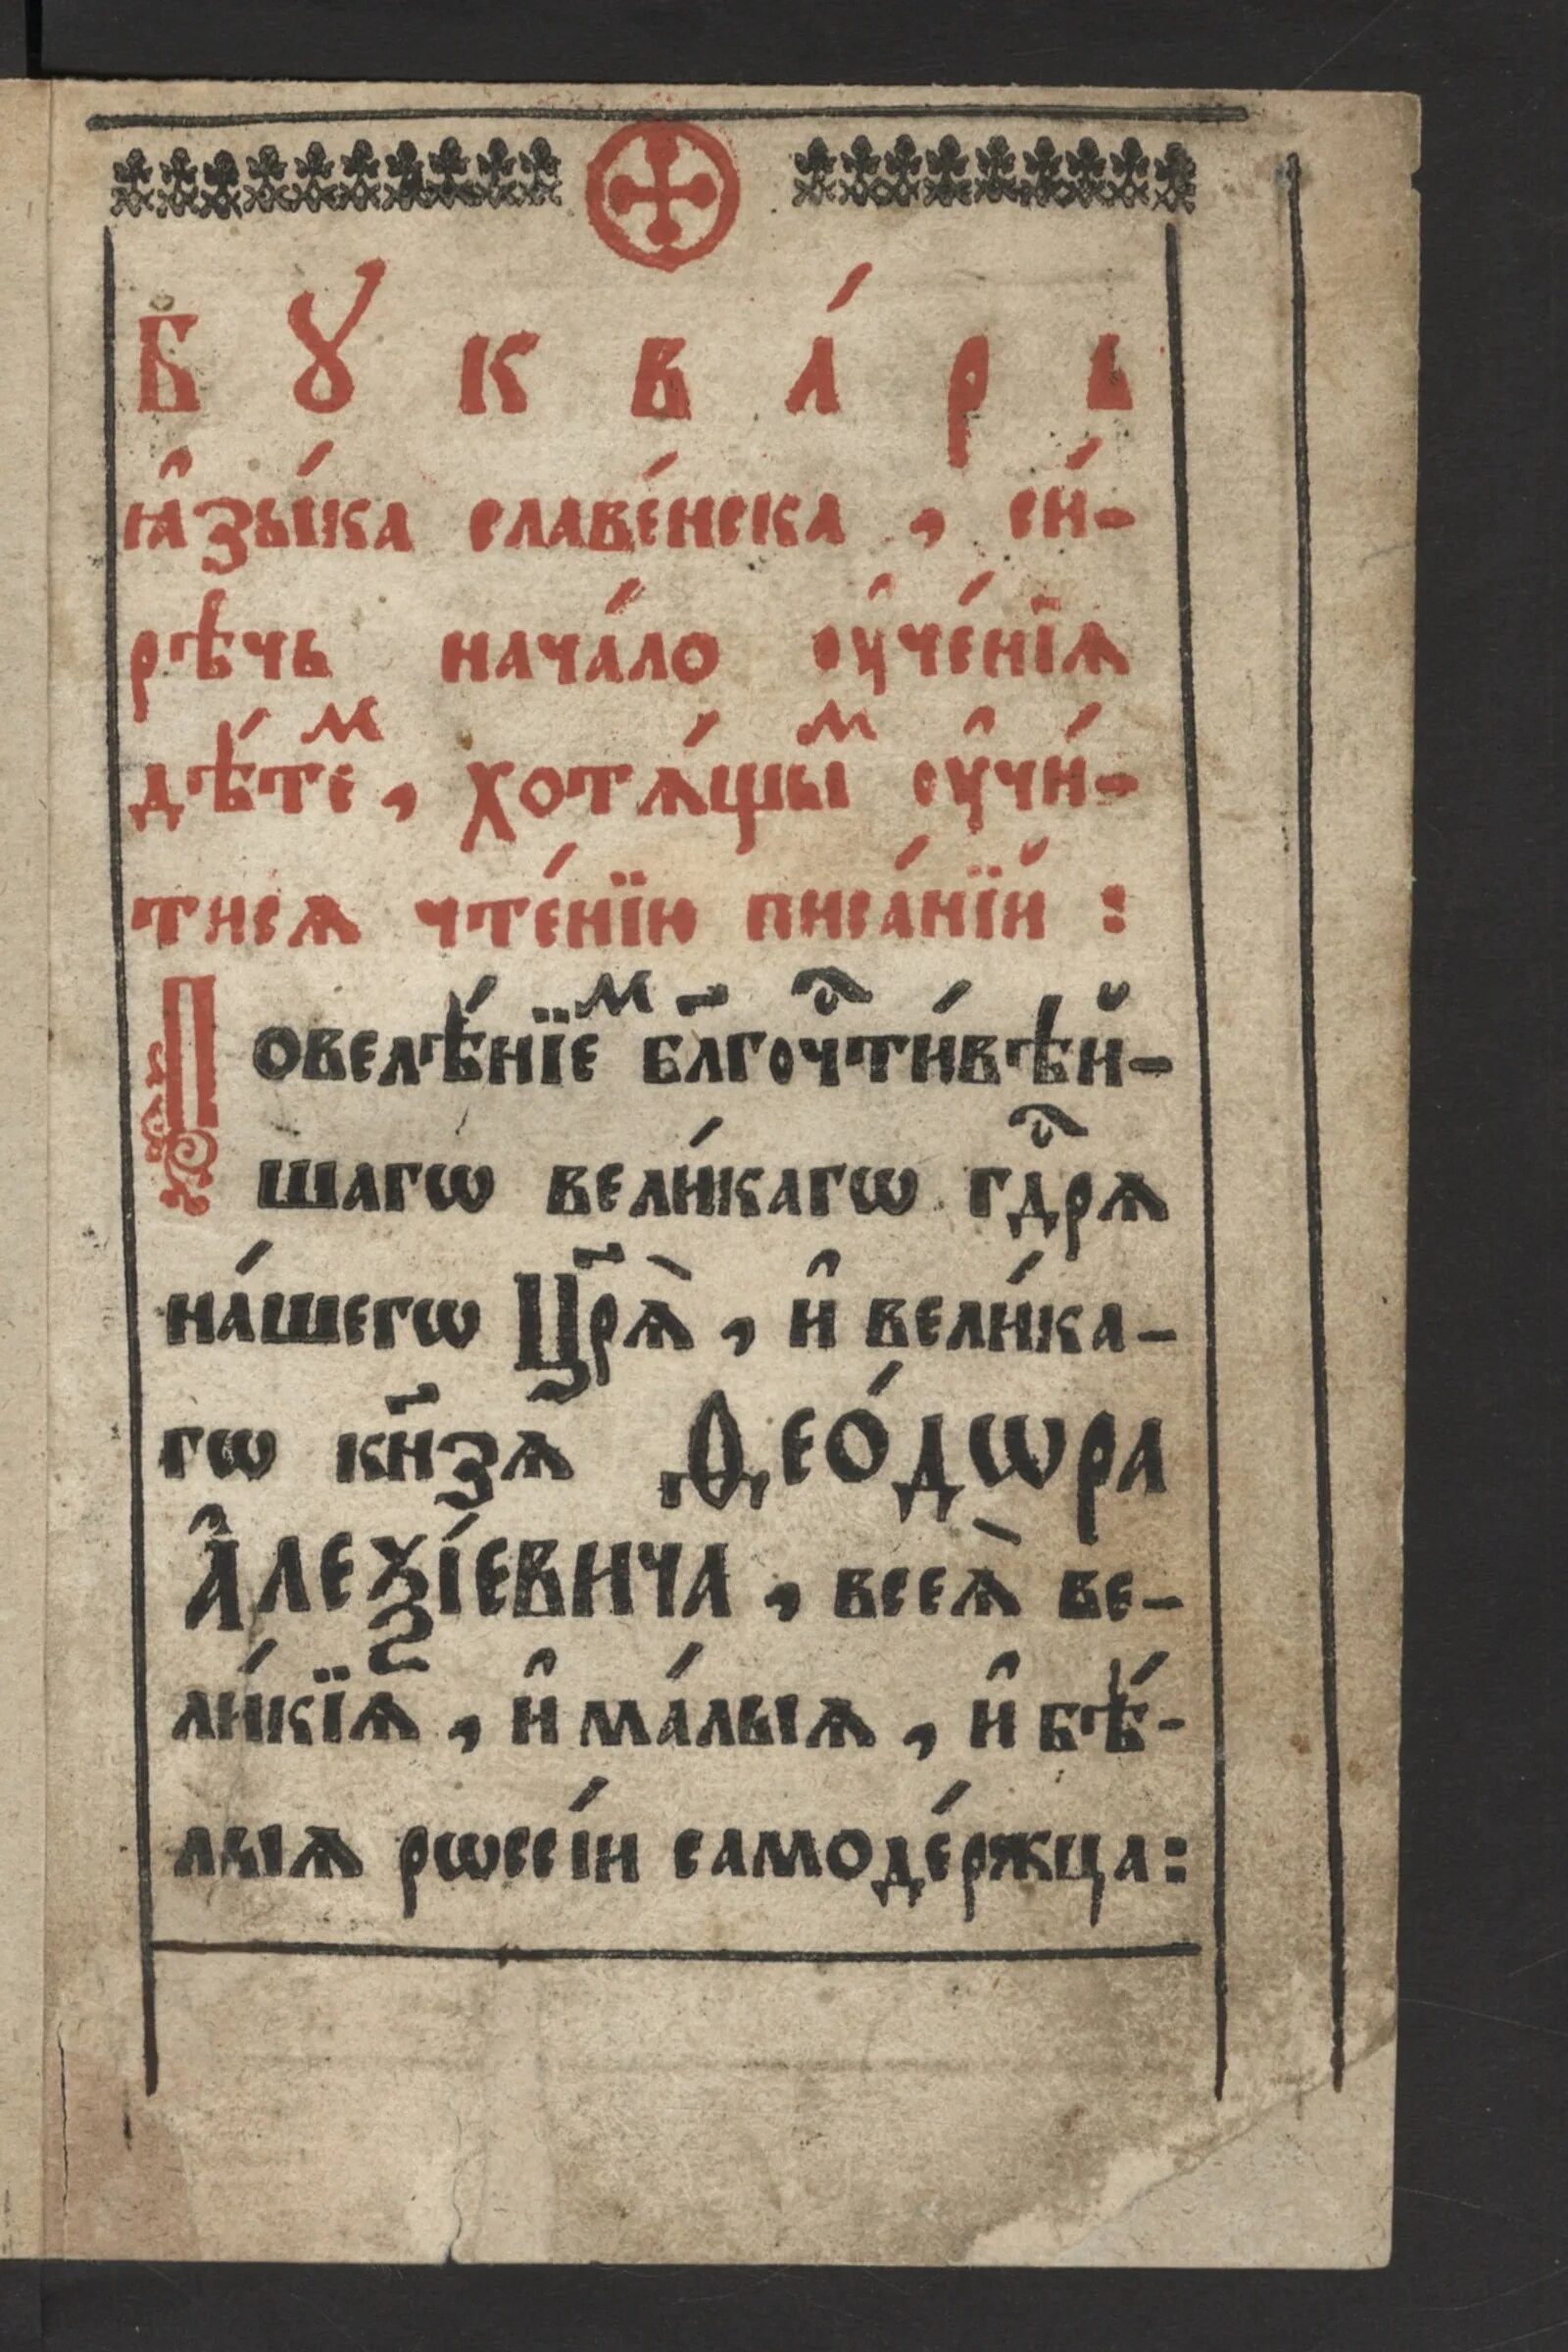 Бꙋква́рь
ꙗ҆зы́ка славе́нска, си́-
рѣчь нача́ло оу҆че́нїѧ
дѣ́теⷨ, хотѧ́щыⷨ оу҆чи́-
тисѧ чте́нїю писа́нїй :
Повелѣ́нїеⷨ бл҃гочⷭ҇ти́вѣй-
шагѡ вели́кагѡ гдⷭ҇рѧ
на́шегѡ Цр҃ѧ̀, и҆ вели́ка-
гѡ кн҃зѧ Ѳео́дѡра
А҆леѯі́евича, всеѧ̀ ве-
ли́кїѧ, и҆ ма́лыѧ, и҆ бѣ́-
лыѧ рѡссі́и самоде́ржца: